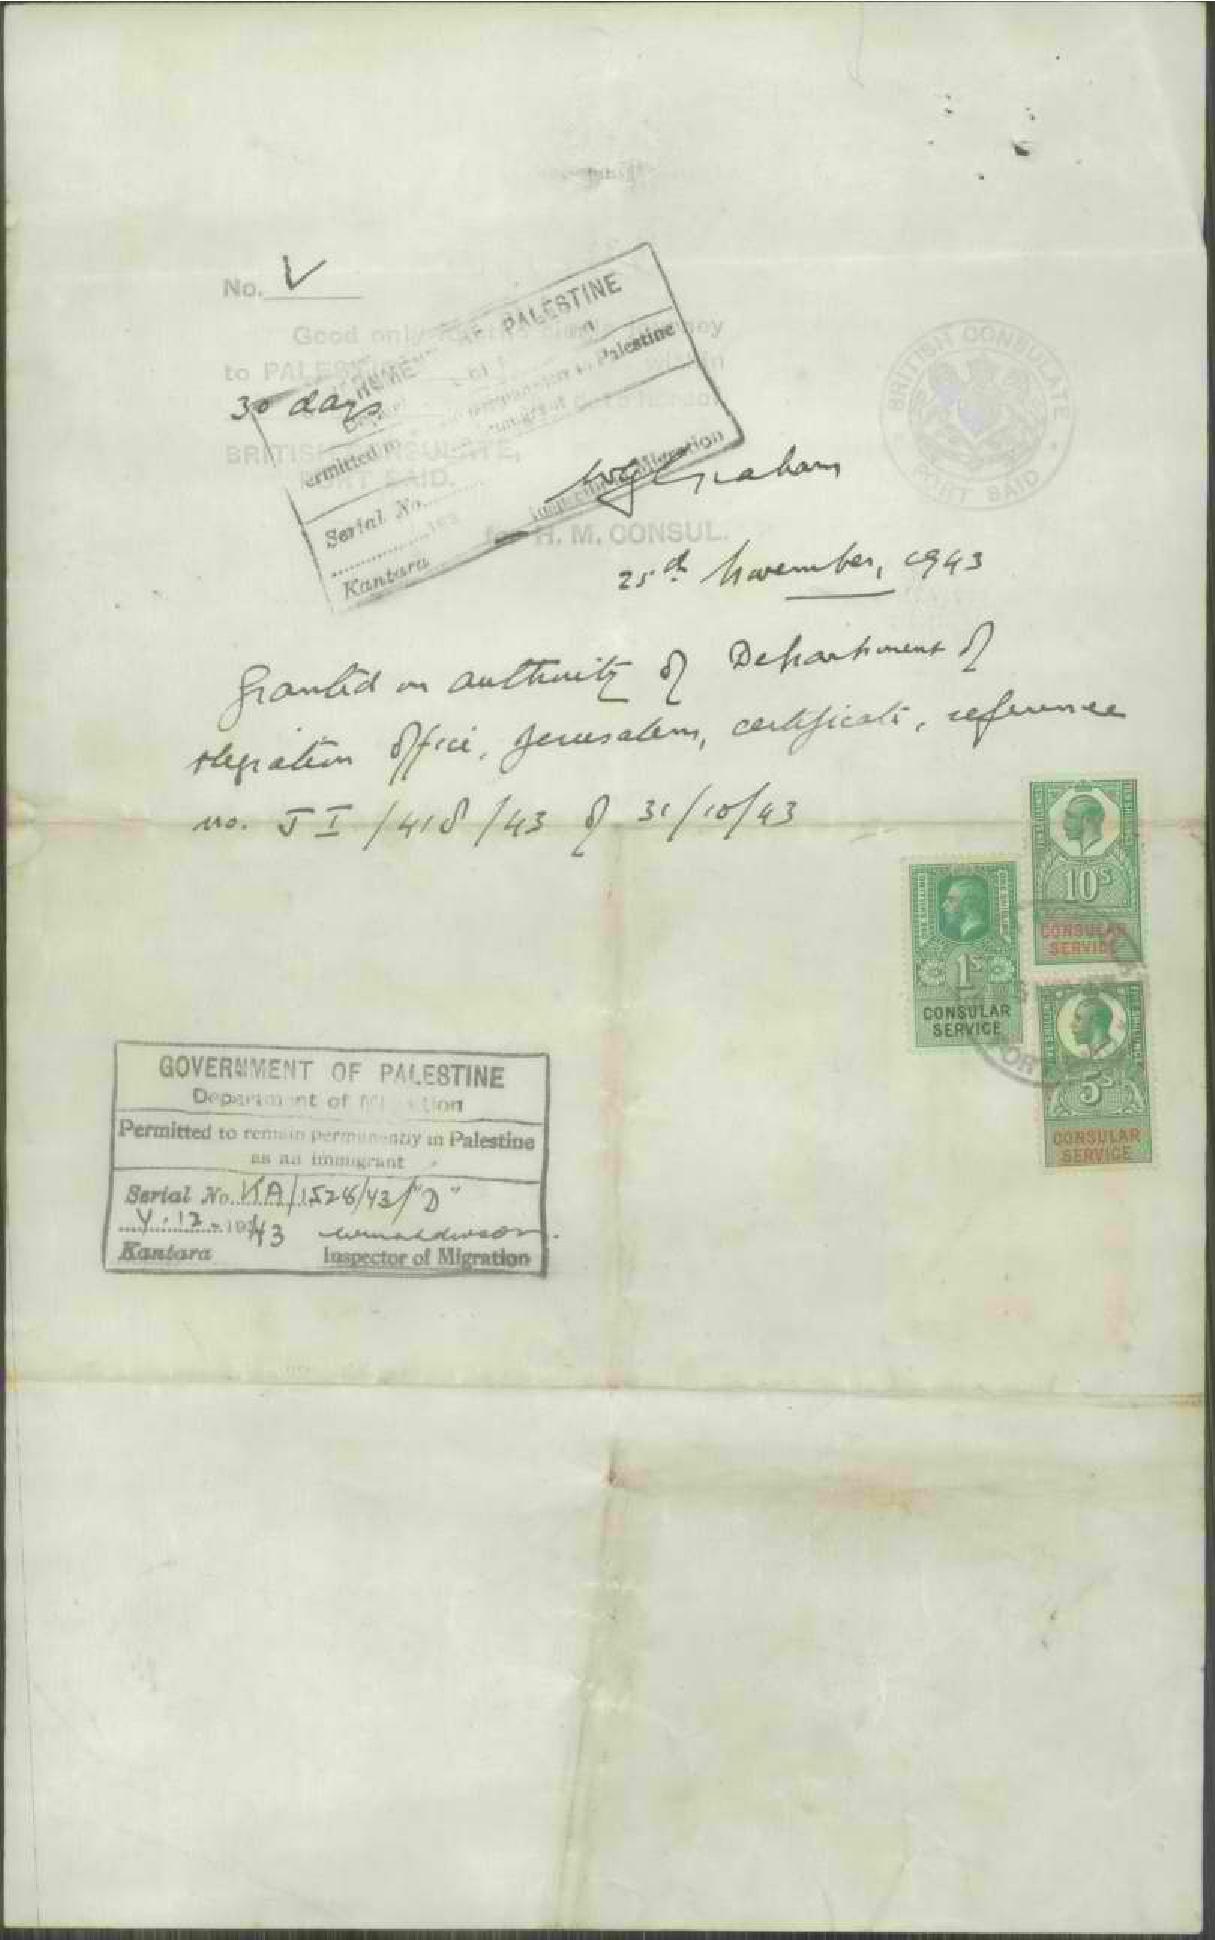 No. V
Good only
to PALESTINE
30 days
BRITISH CONSULATE,
PORT SAID.
for H. M. CONSUL.
BRITISH CONSULATE
PORT SAID
OF PALESTINE
Permitted
in Palestine
Serial No.
Kantara
Inspector of Migration
25th November, 1943
Granted on authority of Department of
Migration Office, Jerusalem, certificate, reference
no. J I /418/43 of 31/10/43
10s
CONSULAR
SERVICE
ONE SHILLING
1s
CONSULAR
SERVICE
5s
CONSULAR
SERVICE
GOVERNMENT OF PALESTINE
Department of Migration
Permitted to remain permanently in Palestine
as an immigrant
Serial No. KA/1528/43/"D"
12 - 1943
Kantara Inspector of Migration